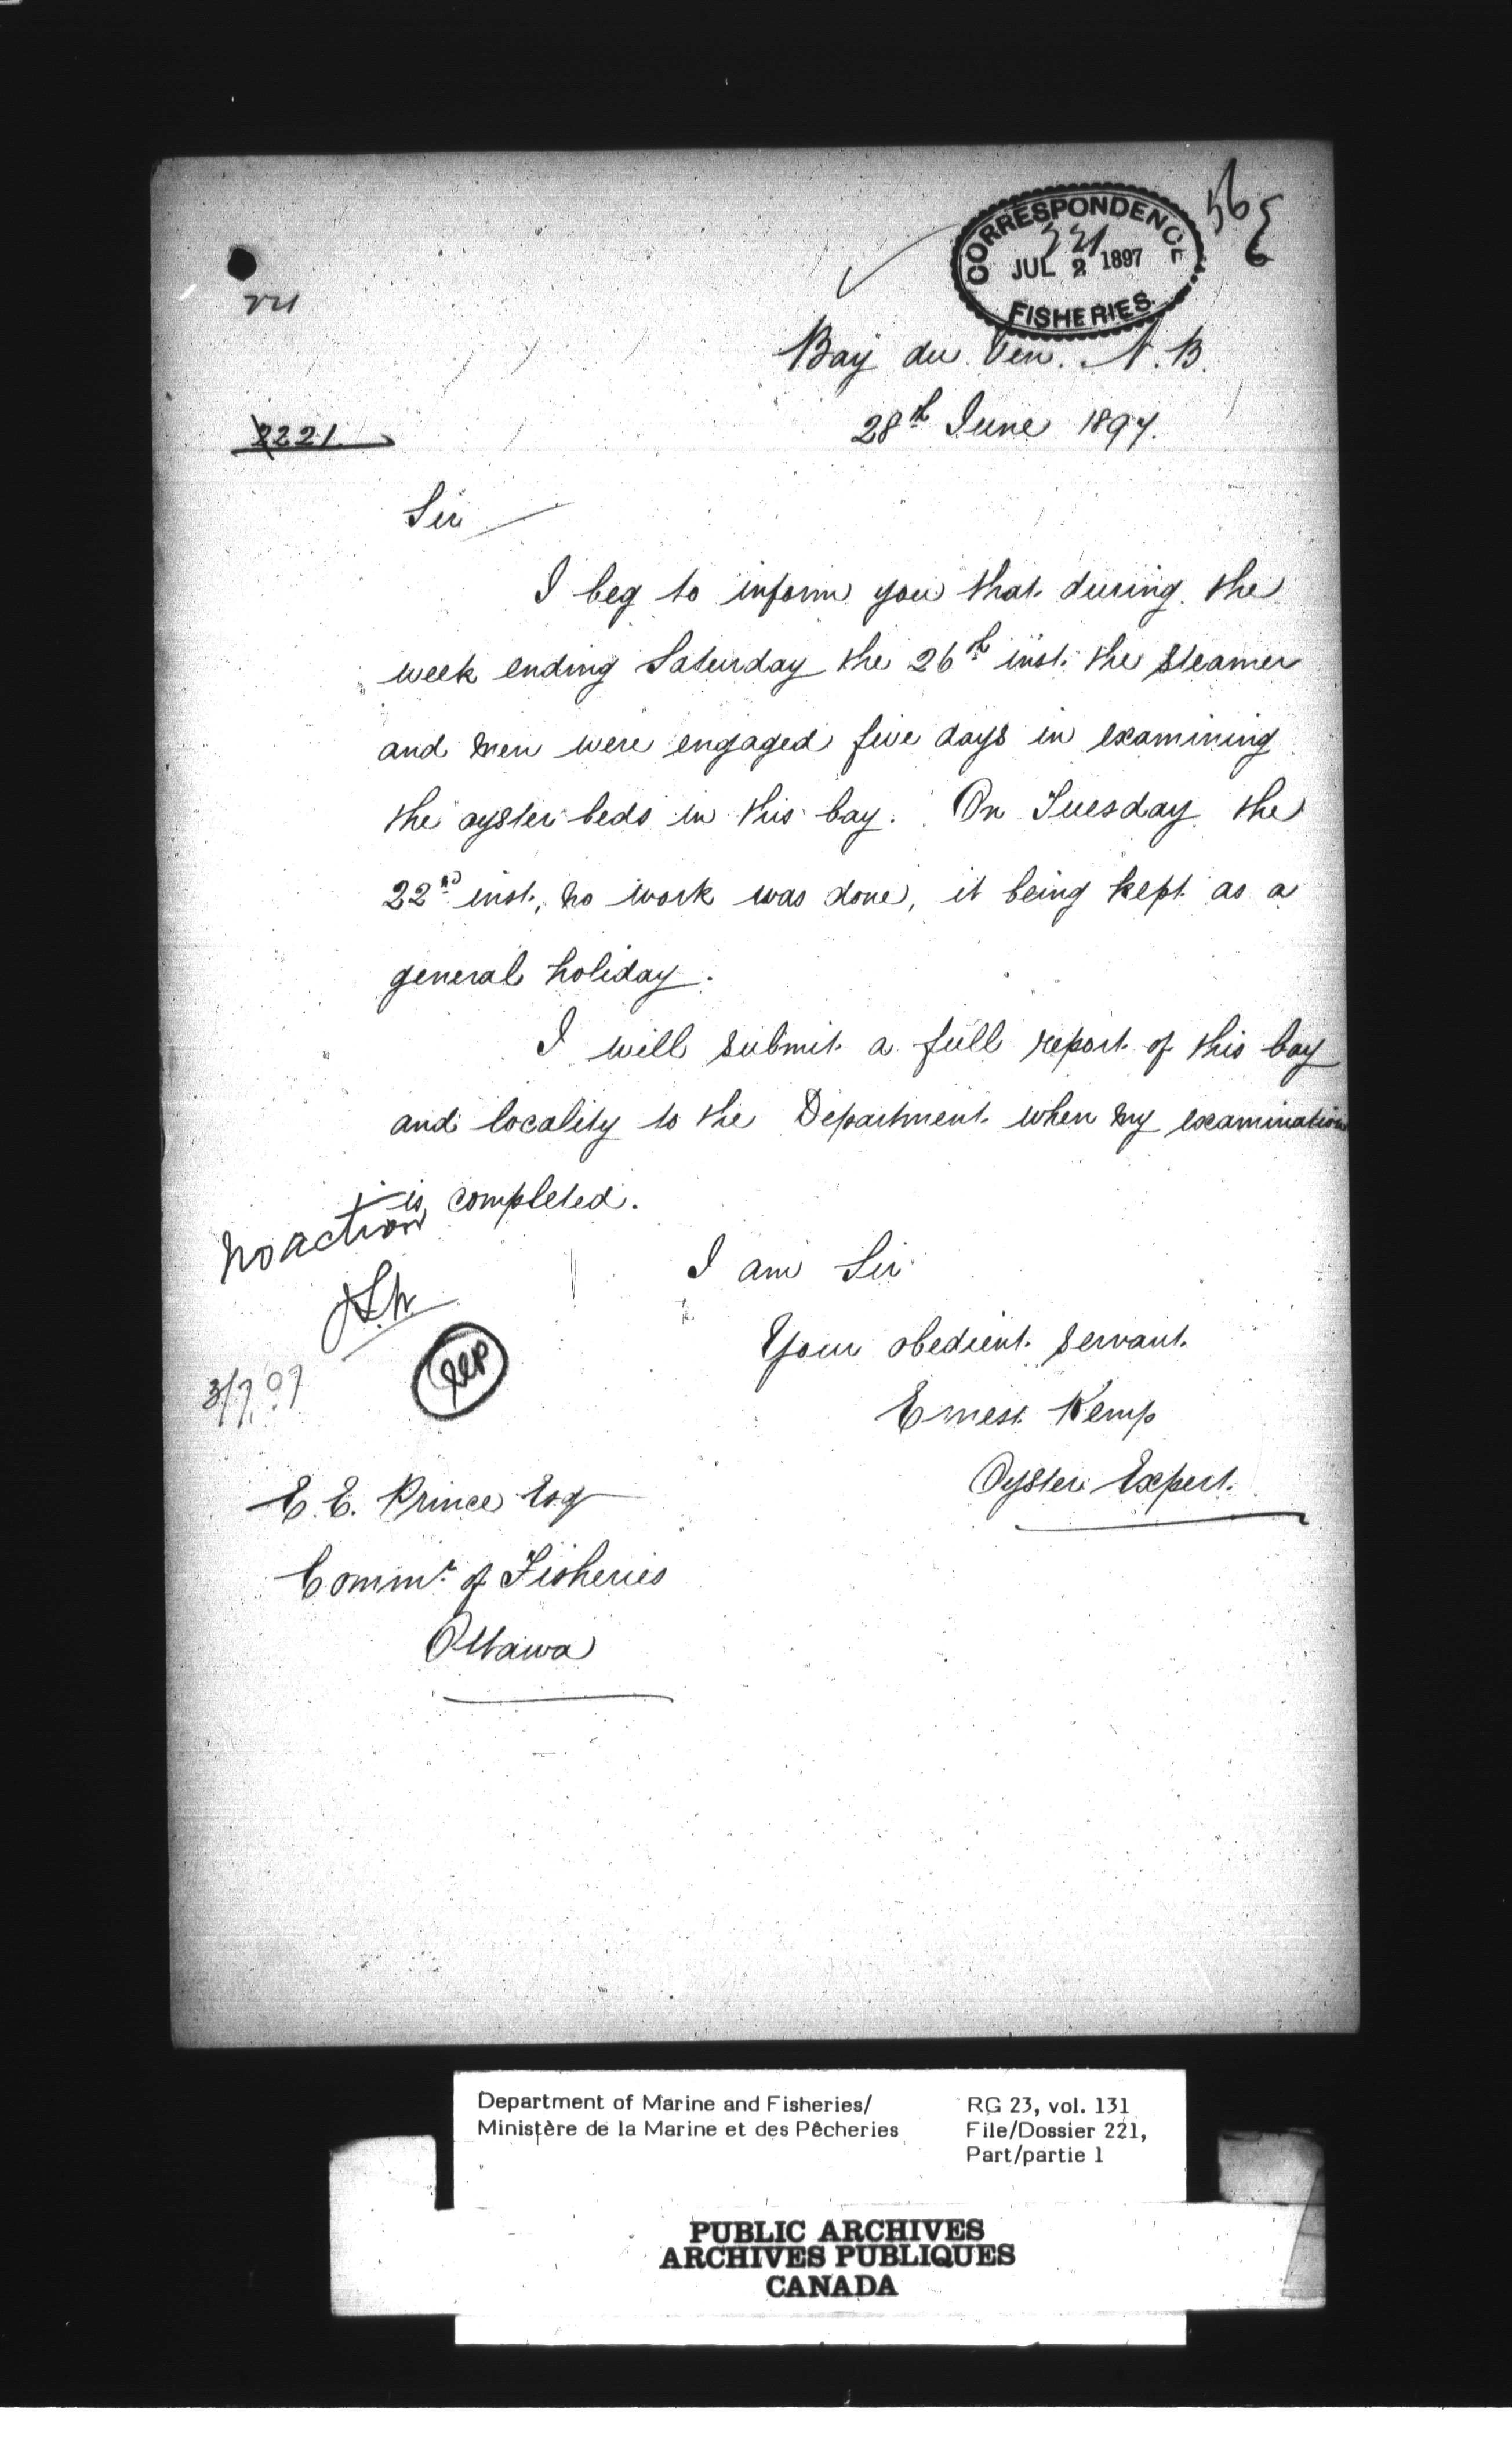 CORRESPONDENCE
221
JUL 2 1897
FISHERIES.
Bay du Ven. N.B.
2221.
28th June 1897.
Sir
I beg to inform you that during the
week ending Saturday the 26th inst. the steamer
and men were engaged five days in examining
the oyster beds in this bay. On Tuesday the
22nd inst., no work was done, it being kept as a
general holiday.
I will submit a full report of this bay
and locality to the Department when my examination
is completed.
No action
I am Sir
Your obedient servant.
Ernest Kemp
Oyster Expert.
E. E. Prince Esq
Commr. of Fisheries
Ottawa
Department of Marine and Fisheries/
Ministère de la Marine et des Pêcheries
RG 23, vol. 131
File/Dossier 221,
Part/partie 1
PUBLIC ARCHIVES
ARCHIVES PUBLIQUES
CANADA